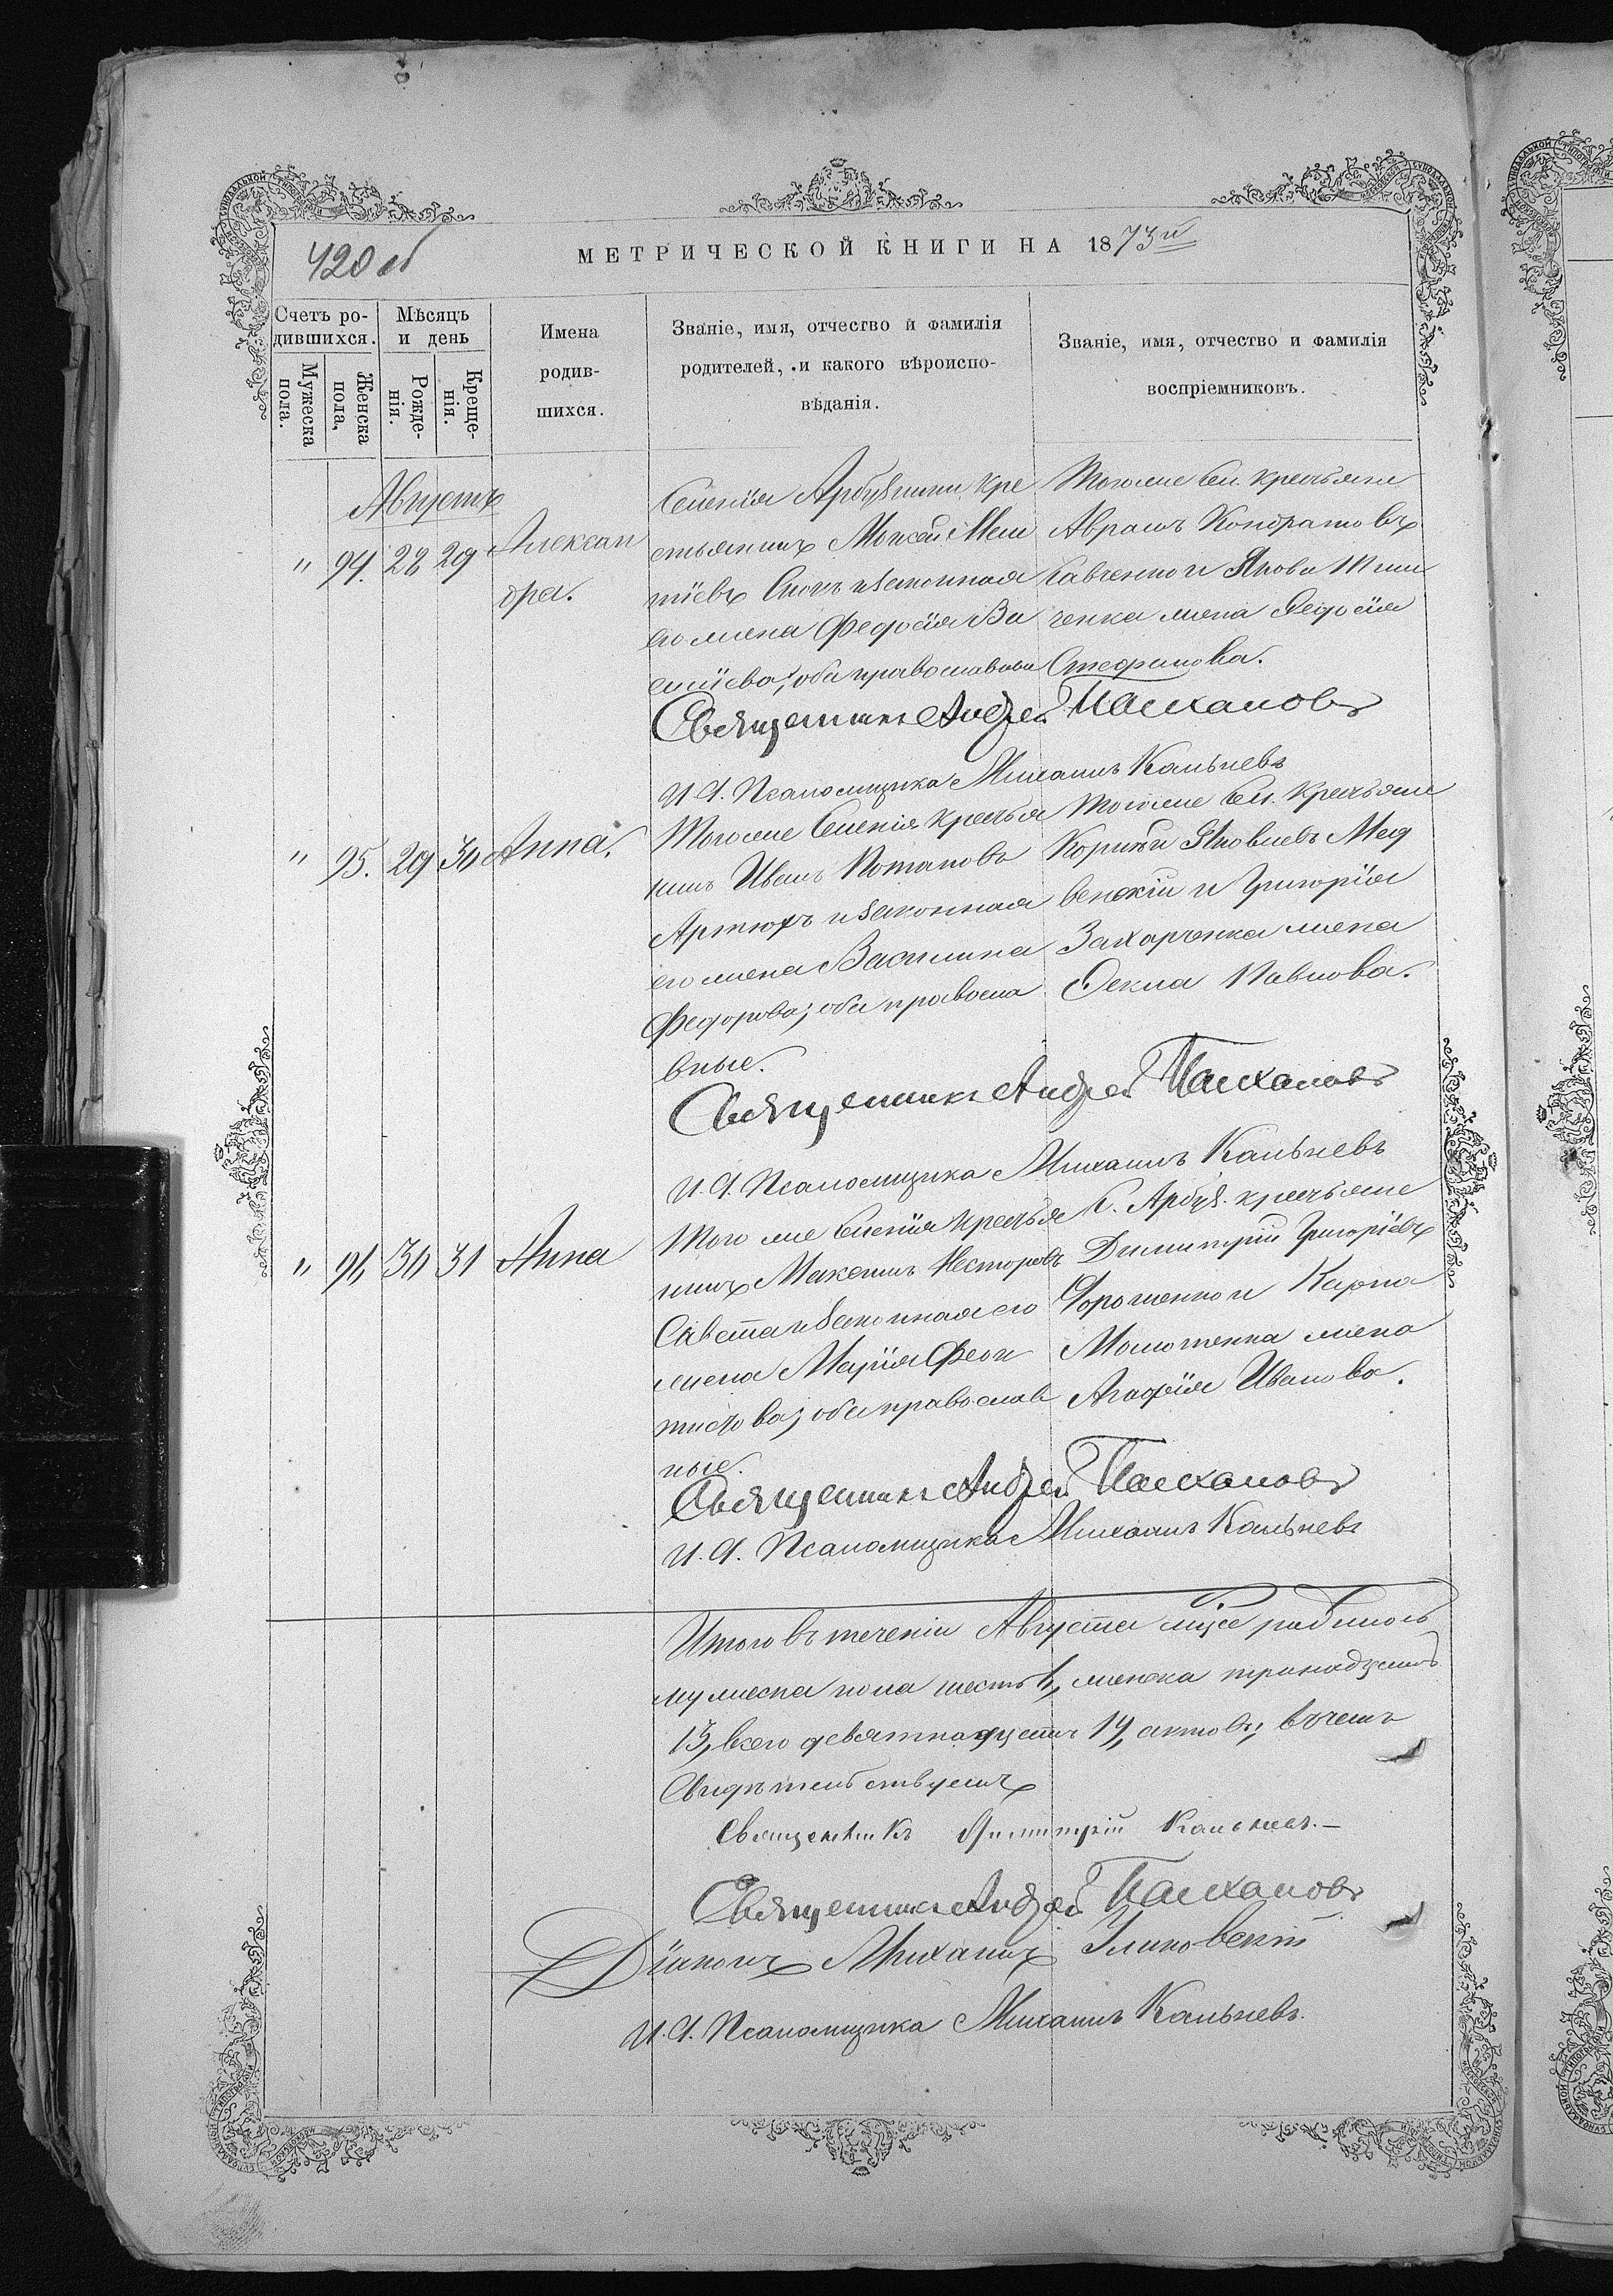 420 об
МЕТРИЧЕСКОЙ КНИГИ НА 1873й
Счетъ ро-
дившихся.
Мужеска
пола.
Женска
пола,
Мѣсяцъ
и день
Рожде-
нія.
Креще-
нія.
Имена
родив-
шихся.
Званіе, имя, отчество и фамилія
родителей, и какого вѣроиспо-
вѣданія.
Званіе, имя, отчество и фамилія
воспріемниковъ.
Августъ
" 94. 28 29
Алексан
дра.
Селенія Арбузинки кре
стьянинъ Моисей Меле
тіевъ и законная
его жена Федосія Ва
силіева; оба православные
Тогоже Сел. крестьяне
Аврамъ Кондратовъ
Савченко и Якова Тим
ченка жена Федосія
Стефанова.
Священникъ Андрей Пасхаловъ
И. Д. Псаломщика Михаилъ Кальневъ
" 95. 29 30 Анна.
Тогоже Селенія крестья
нинъ Иванъ Потаповъ
Артюхъ и законная
его жена Василина
Федорова; оба правосла
вные.
Тогоже Сел. крестьяне
Корнѣй Яковлевъ Мед
венскій и Григорія
Захарченка жена
Фекла Павлова.
Священникъ Андрей Пасхаловъ
И. Д. Псаломщика Михаилъ Кальневъ
" 96, 30 31 Анна
Того же Селенія крестья
нинъ Максимъ Несторовъ
Савета и законная его
жена Марія Феок
тистова; оба православ
ные.
С. Арбуз. крестьяне
Димитрій Григоріевъ
Дорошенко и Карпа
Молотенка жена
Агафія Иванова.
Священникъ Андрей Пасхаловъ
И. Д. Псаломщика Михаилъ Кальневъ
Итого въ теченіи Августа м̃ца родилось
мужеска пола шесть 6, женска тринадцать
13, всего девятнадцать 19, актовъ, въ чемъ
Свидѣтельствуемъ
Священникъ Димитрій Кальневъ.—
Священникъ Андрей Пасхаловъ
Діаконъ Михаилъ
И. Д. Псаломщика Михаилъ Кальневъ.